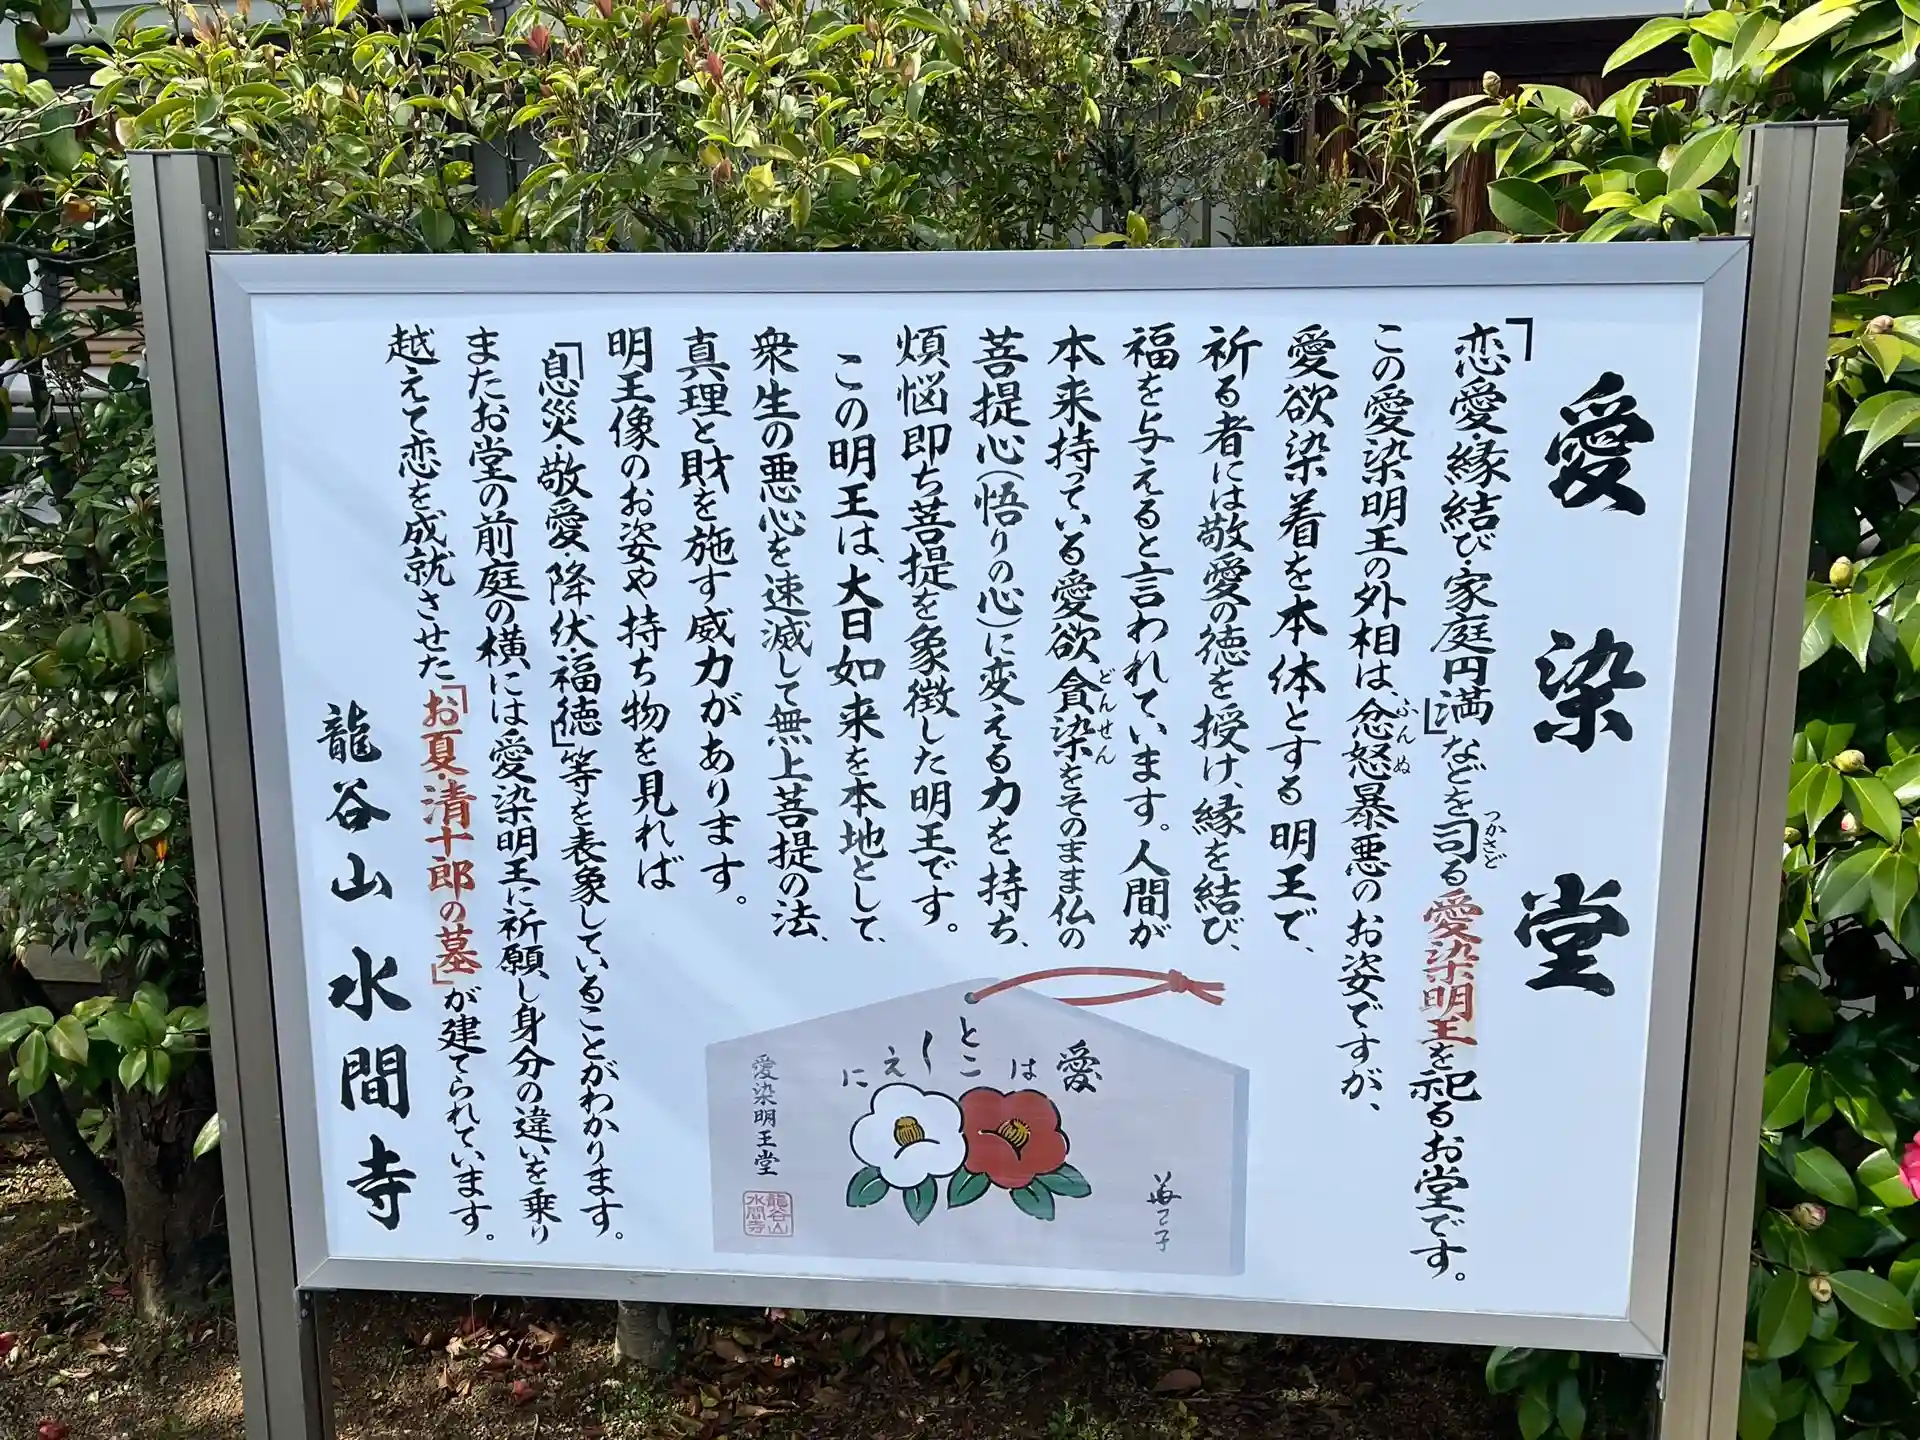 愛染堂
「恋愛・縁結び・家庭円満」などを司る愛染明王を祀るお堂です。
つかさど
この愛染明王の外相は、忿怒暴悪のお姿ですが、
ふんぬ
愛欲染着を本体とする明王で、
祈る者には敬愛の徳を授け、縁を結び、
福を与えると言われています。人間が
本来持っている愛欲貪染をそのまま仏の
どんせん
菩提心(悟りの心)に変える力を持ち、
煩悩即ち菩提を象徴した明王です。
この明王は、大日如来を本地として、
衆生の悪心を速滅して無上菩提の法、
真理と財を施す威力があります。
明王像のお姿や持ち物を見れば
「息災・敬愛・降伏・福徳」等を表象していることがわかります。
またお堂の前庭の横には愛染明王に祈願し身分の違いを乗り
越えて恋を成就させた「お夏・清十郎の墓」が建てられています。
龍谷山水間寺
愛
は
とこ
しえに
愛染明王堂
龍谷山
水間寺